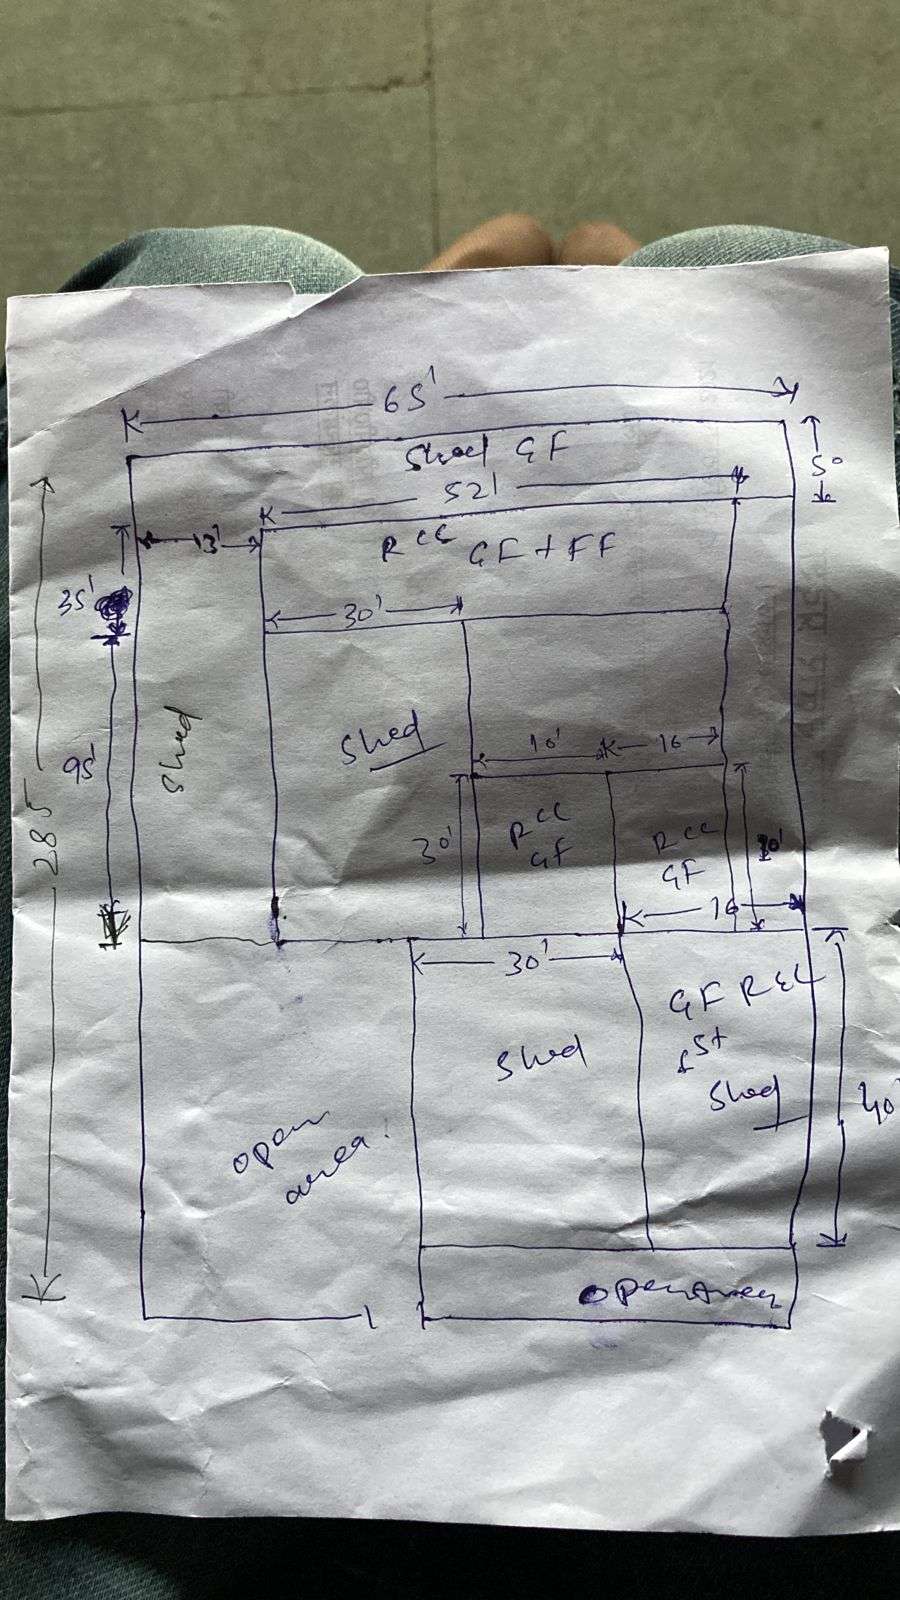 65'
Shed GF
50
52'
13'
RCC
GF + FF
35'
30'
Shed
Shed
10'
16
95'
285
30'
RCC
GF
RCC
GF
30'
16
30'
GF RCC
1st
Shed
Shed
40'
open
area
open Area